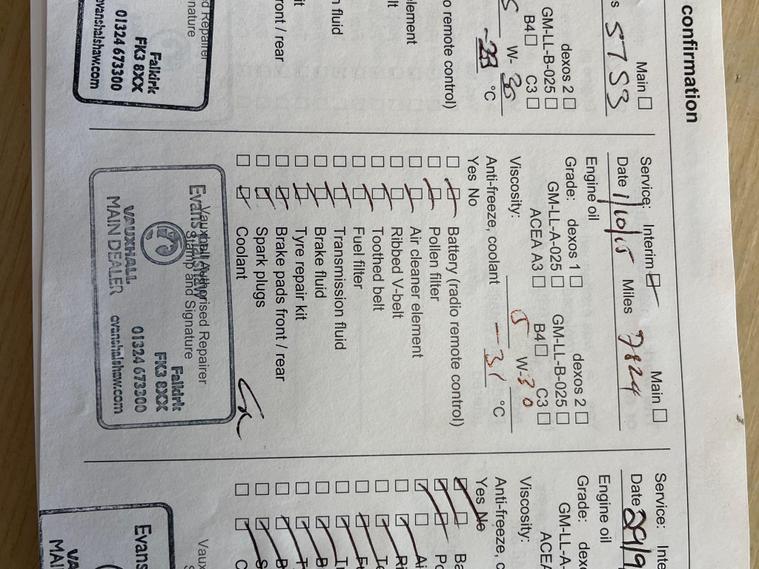 confirmation
Main
5753
dexos 2
GM-LL-B-025
B4 C3
W-30
-23 °C
o remote control)
lement
lt
n fluid
it
ront / rear
d Repairer
nature
Falkirk
FK3 8XX
01324 673300
evanshalshaw.com
Service: Interim Main
Date 1/10/15 Miles 7824
Engine oil
Grade: dexos 1 dexos 2
GM-LL-A-025 GM-LL-B-025
ACEA A3 B4 C3
Viscosity: 5 W-30
Anti-freeze, coolant -31 °C
Yes No
Battery (radio remote control)
Pollen filter
Air cleaner element
Ribbed V-belt
Toothed belt
Fuel filter
Transmission fluid
Brake fluid
Tyre repair kit
Brake pads front / rear
Spark plugs
Coolant
Vauxhall Authorised Repairer
Stamp and Signature
Evans Halshaw
VAUXHALL
MAIN DEALER
Falkirk
FK3 8XX
01324 673300
evanshalshaw.com
Service: Inte
Date 29/9
Engine oil
Grade: dexo
GM-LL-A-
ACEA
Viscosity:
Anti-freeze, c
Yes No
Ba
Po
Ai
Ri
To
Fu
Tr
B
T
B
S
C
Vaux
S
Evans
VA
MAI